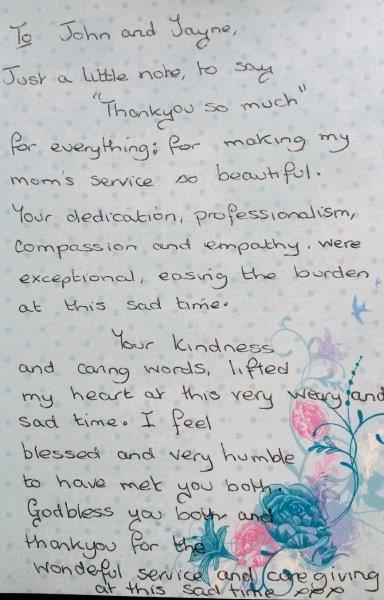 To John and Jayne,
Just a little note, to say
"Thankyou so much"
for everything; for making my
mom's service so beautiful.
Your dedication, professionalism,
compassion and empathy. were
exceptional, easing the burden
at this sad time.
Your kindness
and caring words, lifted
my heart at this very weary and
sad time. I feel
blessed and very humble
to have met you both.
Godbless you both and
thankyou for the
wonderful service and care giving
at this sad time xxx